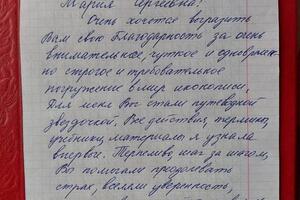 Мария Сергеевна!
Очень хочется выразить
Вам свою благодарность за очень
внимательное, чуткое и одновремен-
но строгое и требовательное
погружение в мир иконописи.
Для меня Вы стали путеводной
звездочкой. Все действия, термины,
учебники, материалы я узнала
впервые. Терпеливо, шаг за шагом,
Вы помогали преодолевать
страх, вселяли уверенность,